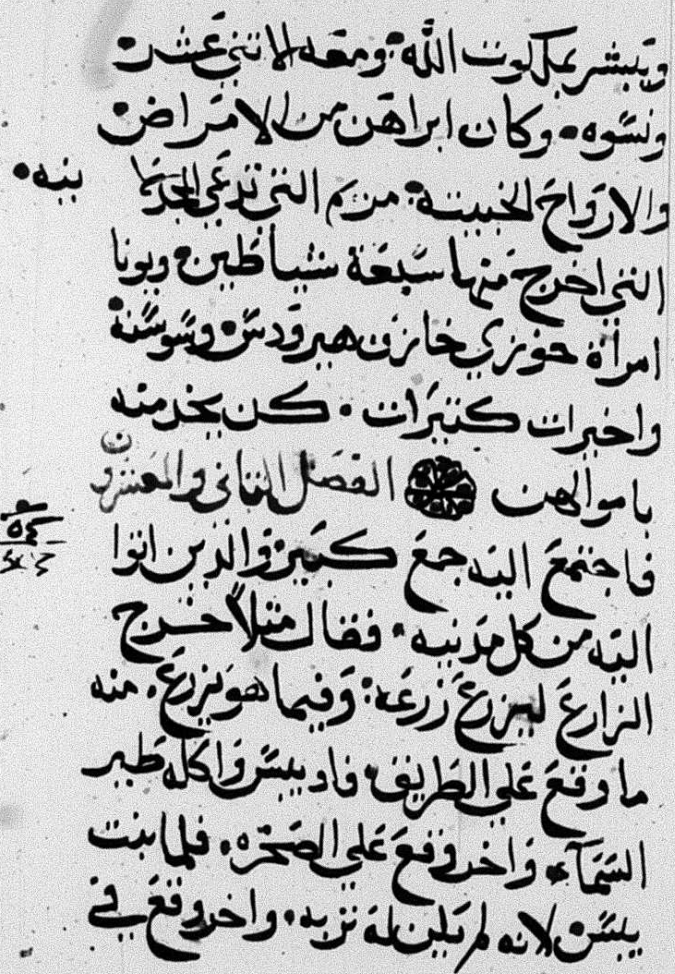 ويبشر بملكوت الله ومعه الاتني عشر
ونسوه وكان ابراهن من الامراض
والارواح الخبيثه مريم التي تدعي المجدليا
نيه
التي اخرج منها سبعة شياطين ويونا
امرأة حوزي خازن هيرودس وسوسنة
واخيرات كتيرات كن يخدمنه
باموالهن الفصل التاني والعشرون
فاجتمع اليه جمع كبير والذين اتوا
اليه من كل مدنيه فقال متلاً خرج
الزارع ليزرع زرعه وفيما هو يزرع منه
ما وقع علي الطريق فاديس واكله طير
السماء واخر وقع علي الصخره فلما بنت
يبس لانه لم يكن له تربه واخر وقع في